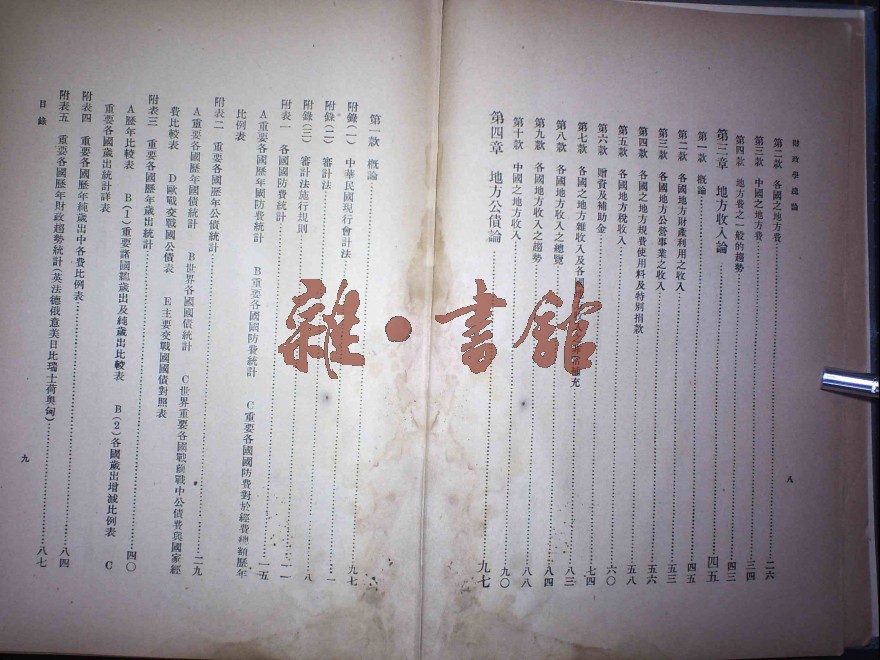 財政學總論
第二款 各國之地方費 二六
第三款 中國之地方費 三四
第四款 地方費之一般的趨勢 四三
第三章 地方收入論 四五
第一款 概論 四五
第二款 各國地方財產利用之收入 五三
第三款 各國地方公營事業之收入 五六
第四款 各國之地方規費使用料及特別捐款 五八
第五款 各國地方稅收入 六〇
第六款 贈資及補助金 七四
第七款 各國之地方雜收入及各國 充 八三
第八款 各國地方收入之總覽 八四
第九款 各國地方收入之趨勢 八八
第十款 中國之地方收入 九〇
第四章 地方公債論 九七
八
第一款 概論 九七
附錄(一) 中華民國現行會計法 一
附錄(二) 審計法 八
附錄(三) 審計法施行規則
附表一 各國國防費統計 一一
A重要各國歷年國防費統計 B重要各國國防費統計 C重要各國國防費對於經費總額歷年
比例表 一五
附表二 重要各國歷年公債統計 二九
A重要各國歷年國債統計 B世界各國國債統計 C世界重要各國戰前戰中公債費與國家經
費比較表 D歐戰交戰國公債表 E主要交戰國國債對照表
附表三 重要各國歷年歲出統計 四〇
A歷年比較表 B(1)重要諸國總歲出及純歲出比較表 B(2)各國歲出增減比例表 C
重要各國歲出統計詳表
附表四 重要各國歷年純歲出中各費比例表 八四
附表五 重要各國歷年財政趨勢統計(英法德俄意美日比瑞士荷奧匈) 八七
目錄
九
雜·書館